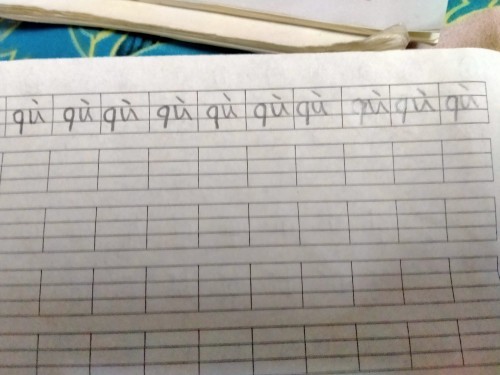 qù qù qù qù qù qù qù qù qù qù